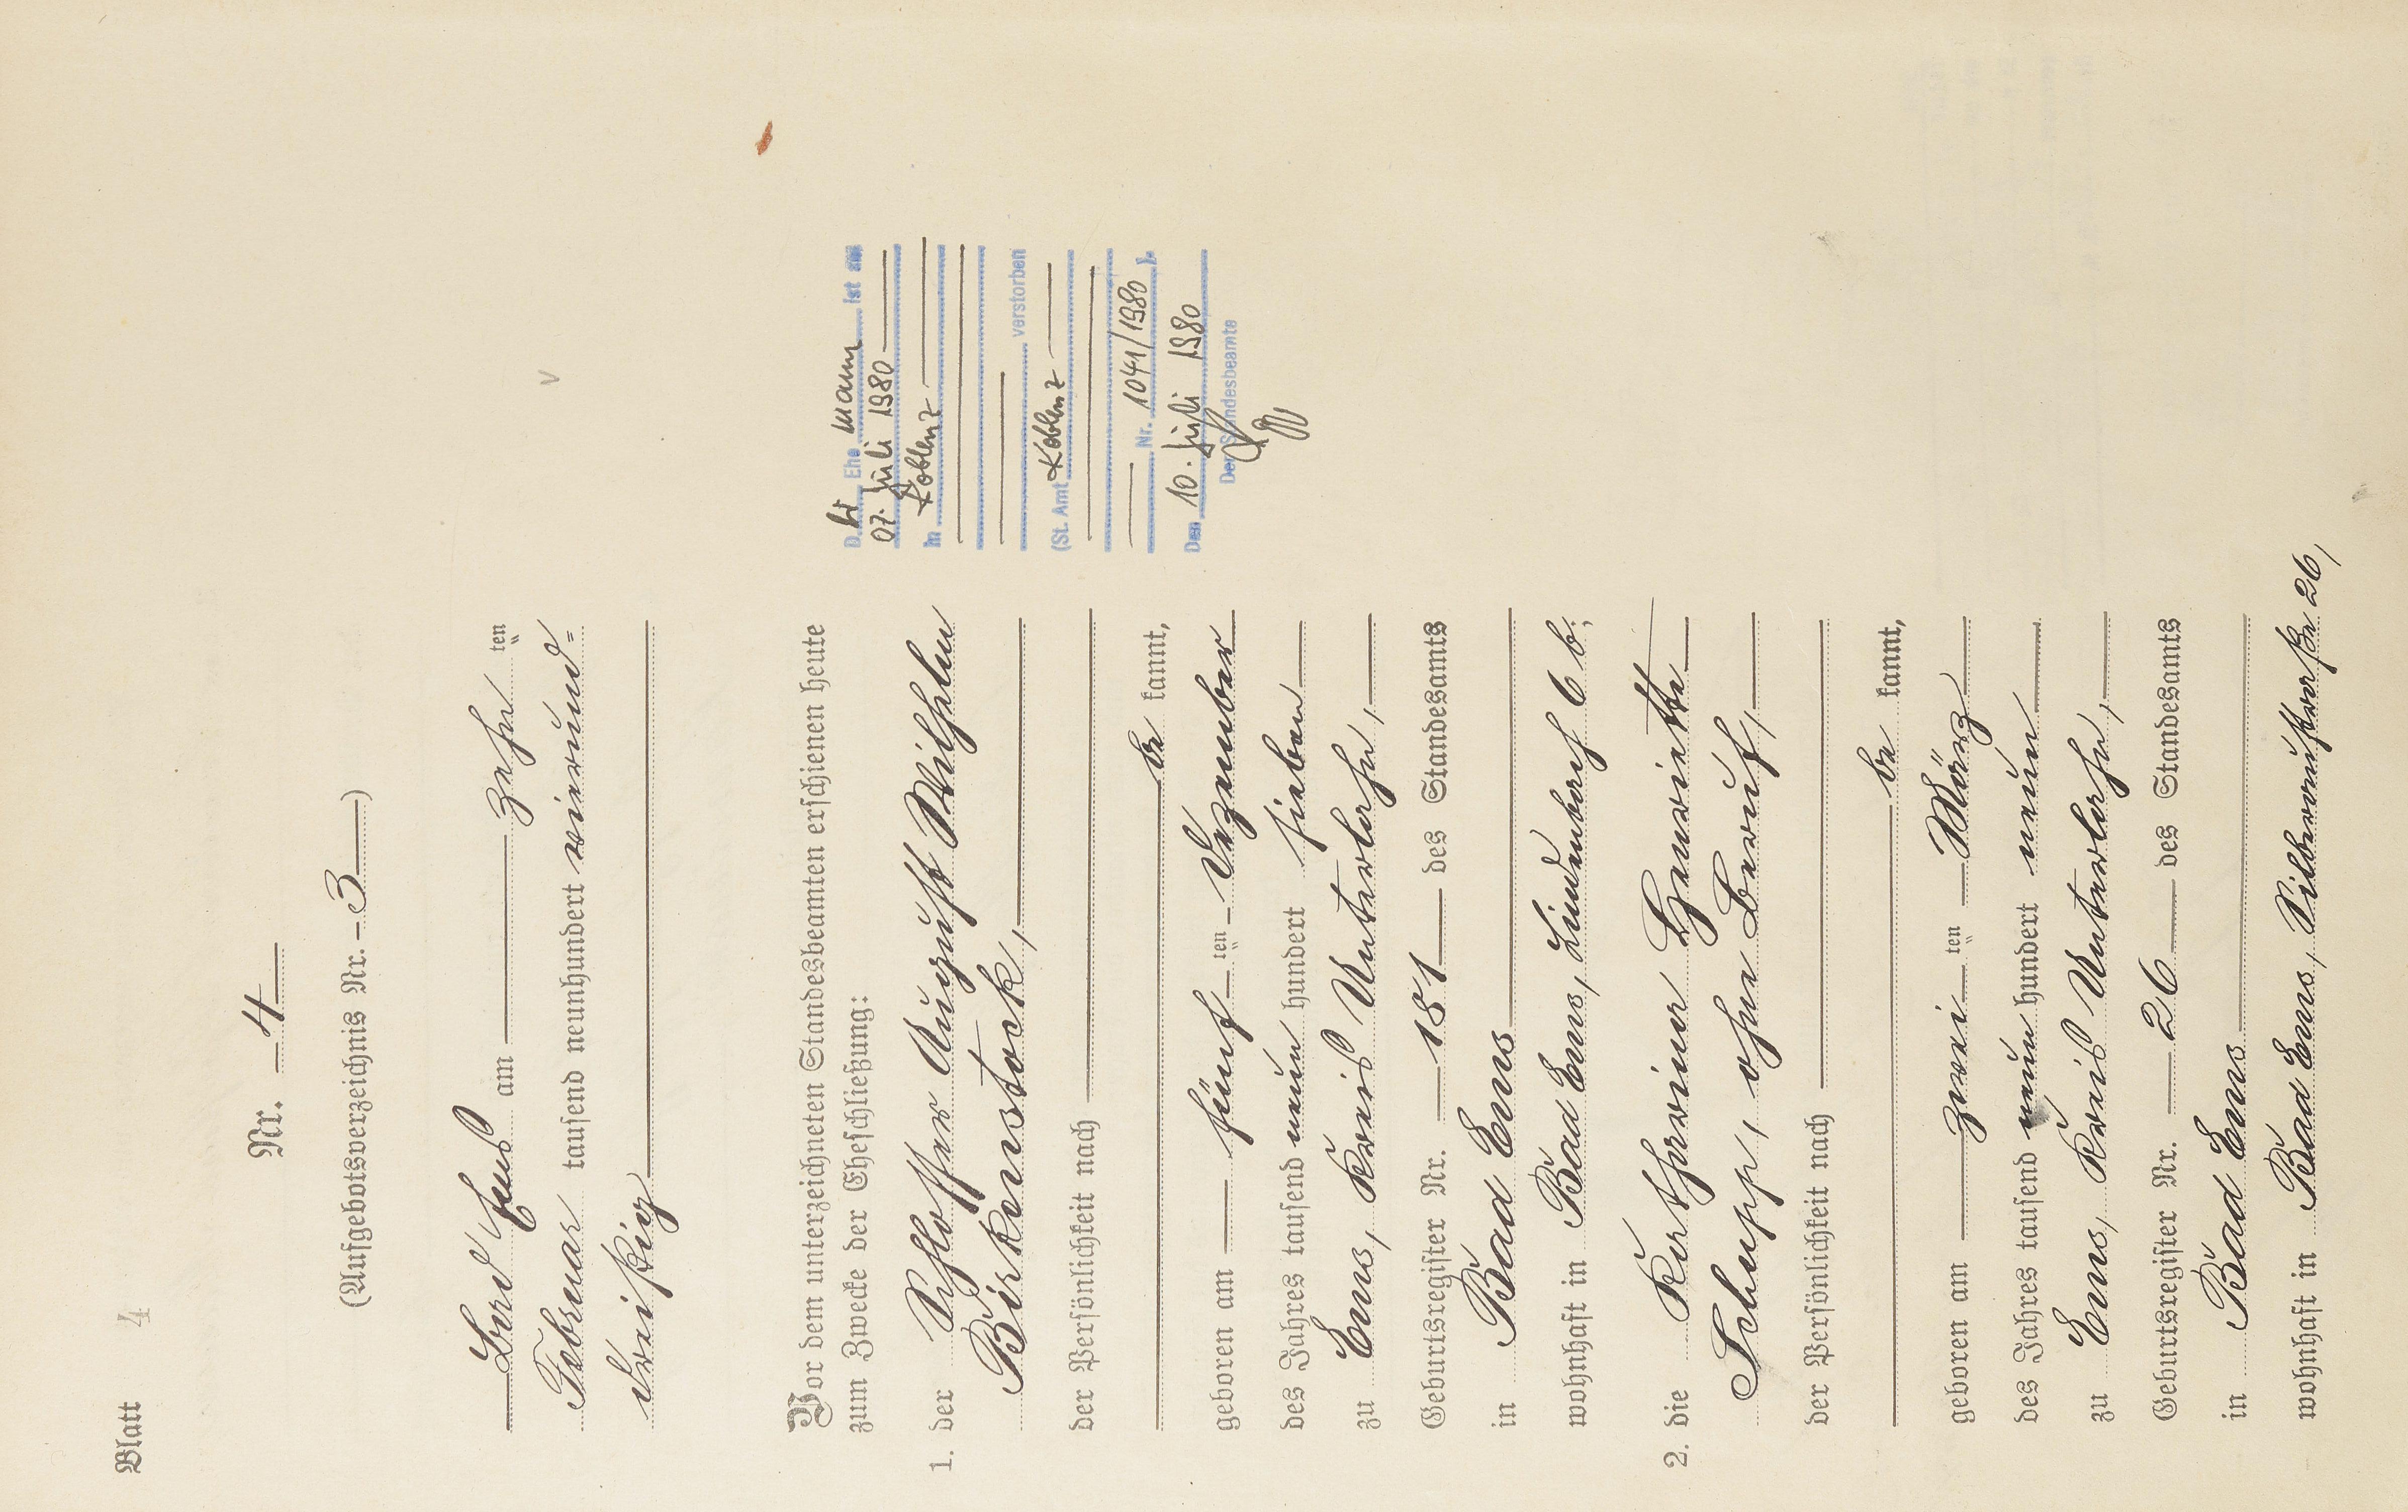 Blatt 4
Nr. 4
(Aufgebotsverzeichnis Nr. 3)
Bad Ems am zehn ten
Februar tausend neunhundert vierund=
dreißig
Vor dem unterzeichneten Standesbeamten erschienen heute
zum Zwecke der Eheschließung:
1. der Schlosser August Wilhelm
Birkenstock,
der Persönlichkeit nach
be kannt,
geboren am fünf ten Dezember
des Jahres tausend neun hundert sieben
zu Ems, Kreis Unterlahn,
Geburtsregister Nr. 181 des Standesamts
in Bad Ems
wohnhaft in Bad Ems, Lindenbach 6 b;
2. die Katharina Henriette
Schupp, ohne Beruf,
der Persönlichkeit nach
be kannt,
geboren am zwei ten März
des Jahres tausend neun hundert neun
zu Ems, Kreis Unterlahn,
Geburtsregister Nr. 26 des Standesamts
in Bad Ems
wohnhaft in Bad Ems, Silberaustraße 26,
D er Ehe mann ist am
07. Juli 1980
in Koblenz
verstorben
(St. Amt Koblenz
Nr. 1041/1980).
Den 10. Juli 1980
Der Standesbeamte